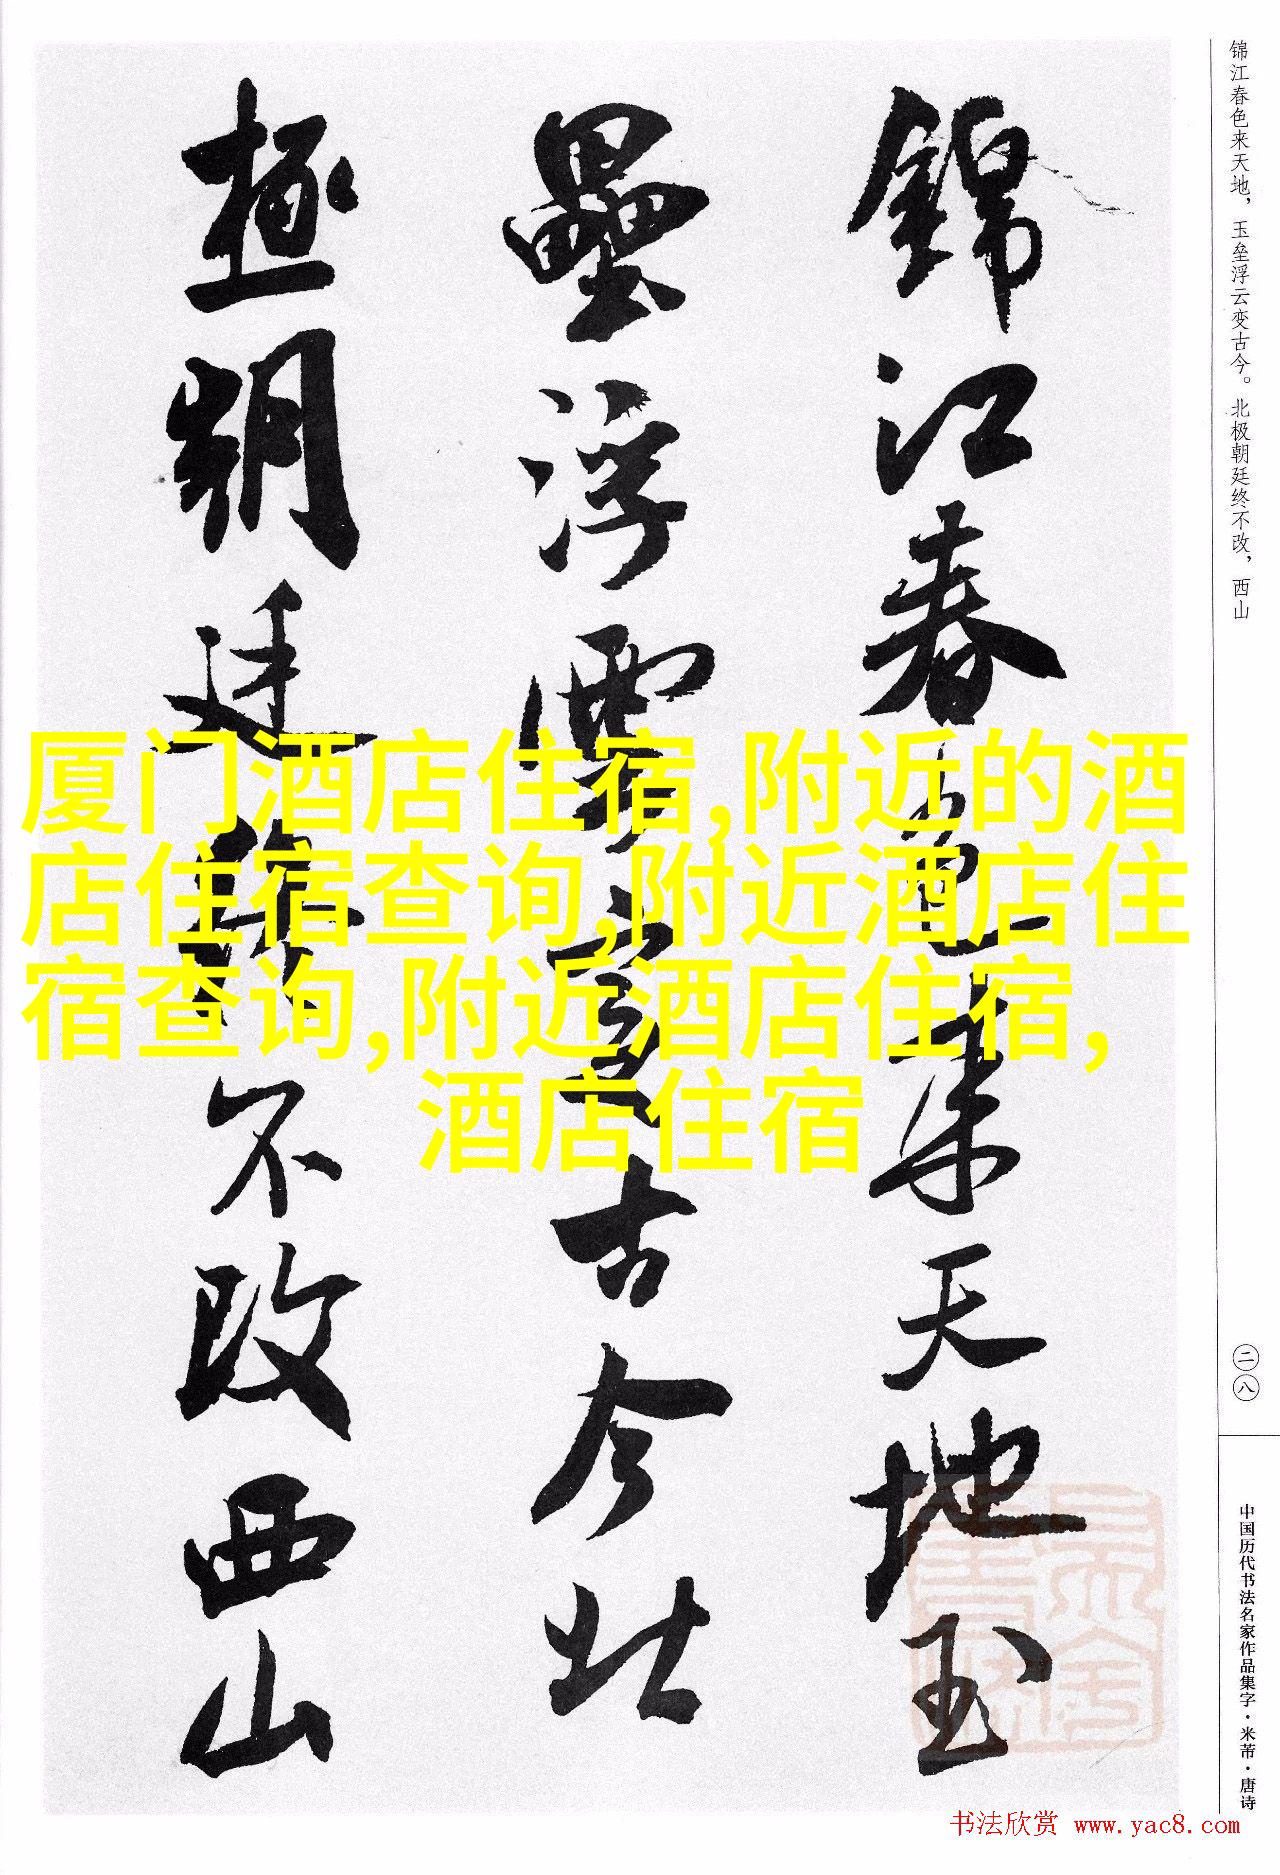 錦江春色来天地玉
壘浮雲變古今北
極朝廷終不改西山
锦江春色来天地，玉垒浮云变古今。北极朝廷终不改，西山
厦门酒店住宿,附近的酒
店住宿查询,附近酒店住
宿查询,附近酒店住宿,
酒店住宿
二八
中国历代书法名家作品集字·米芾·唐诗
书法欣赏 www.yac8.com